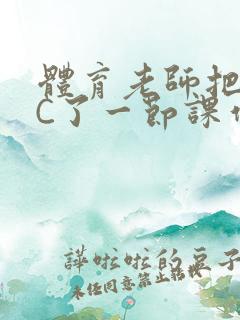 體育老師把
C了一節課
譁啦啦的豆子
未经同意禁止转载